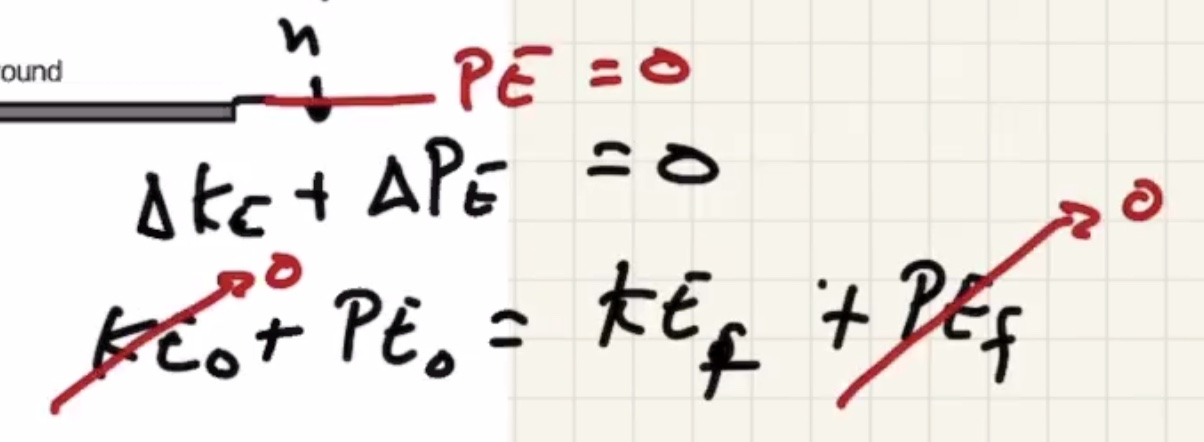 n
ound
PE = 0
ΔKE + ΔPE = 0
0 0
KE₀ + PE₀ = KE_f + PE_f